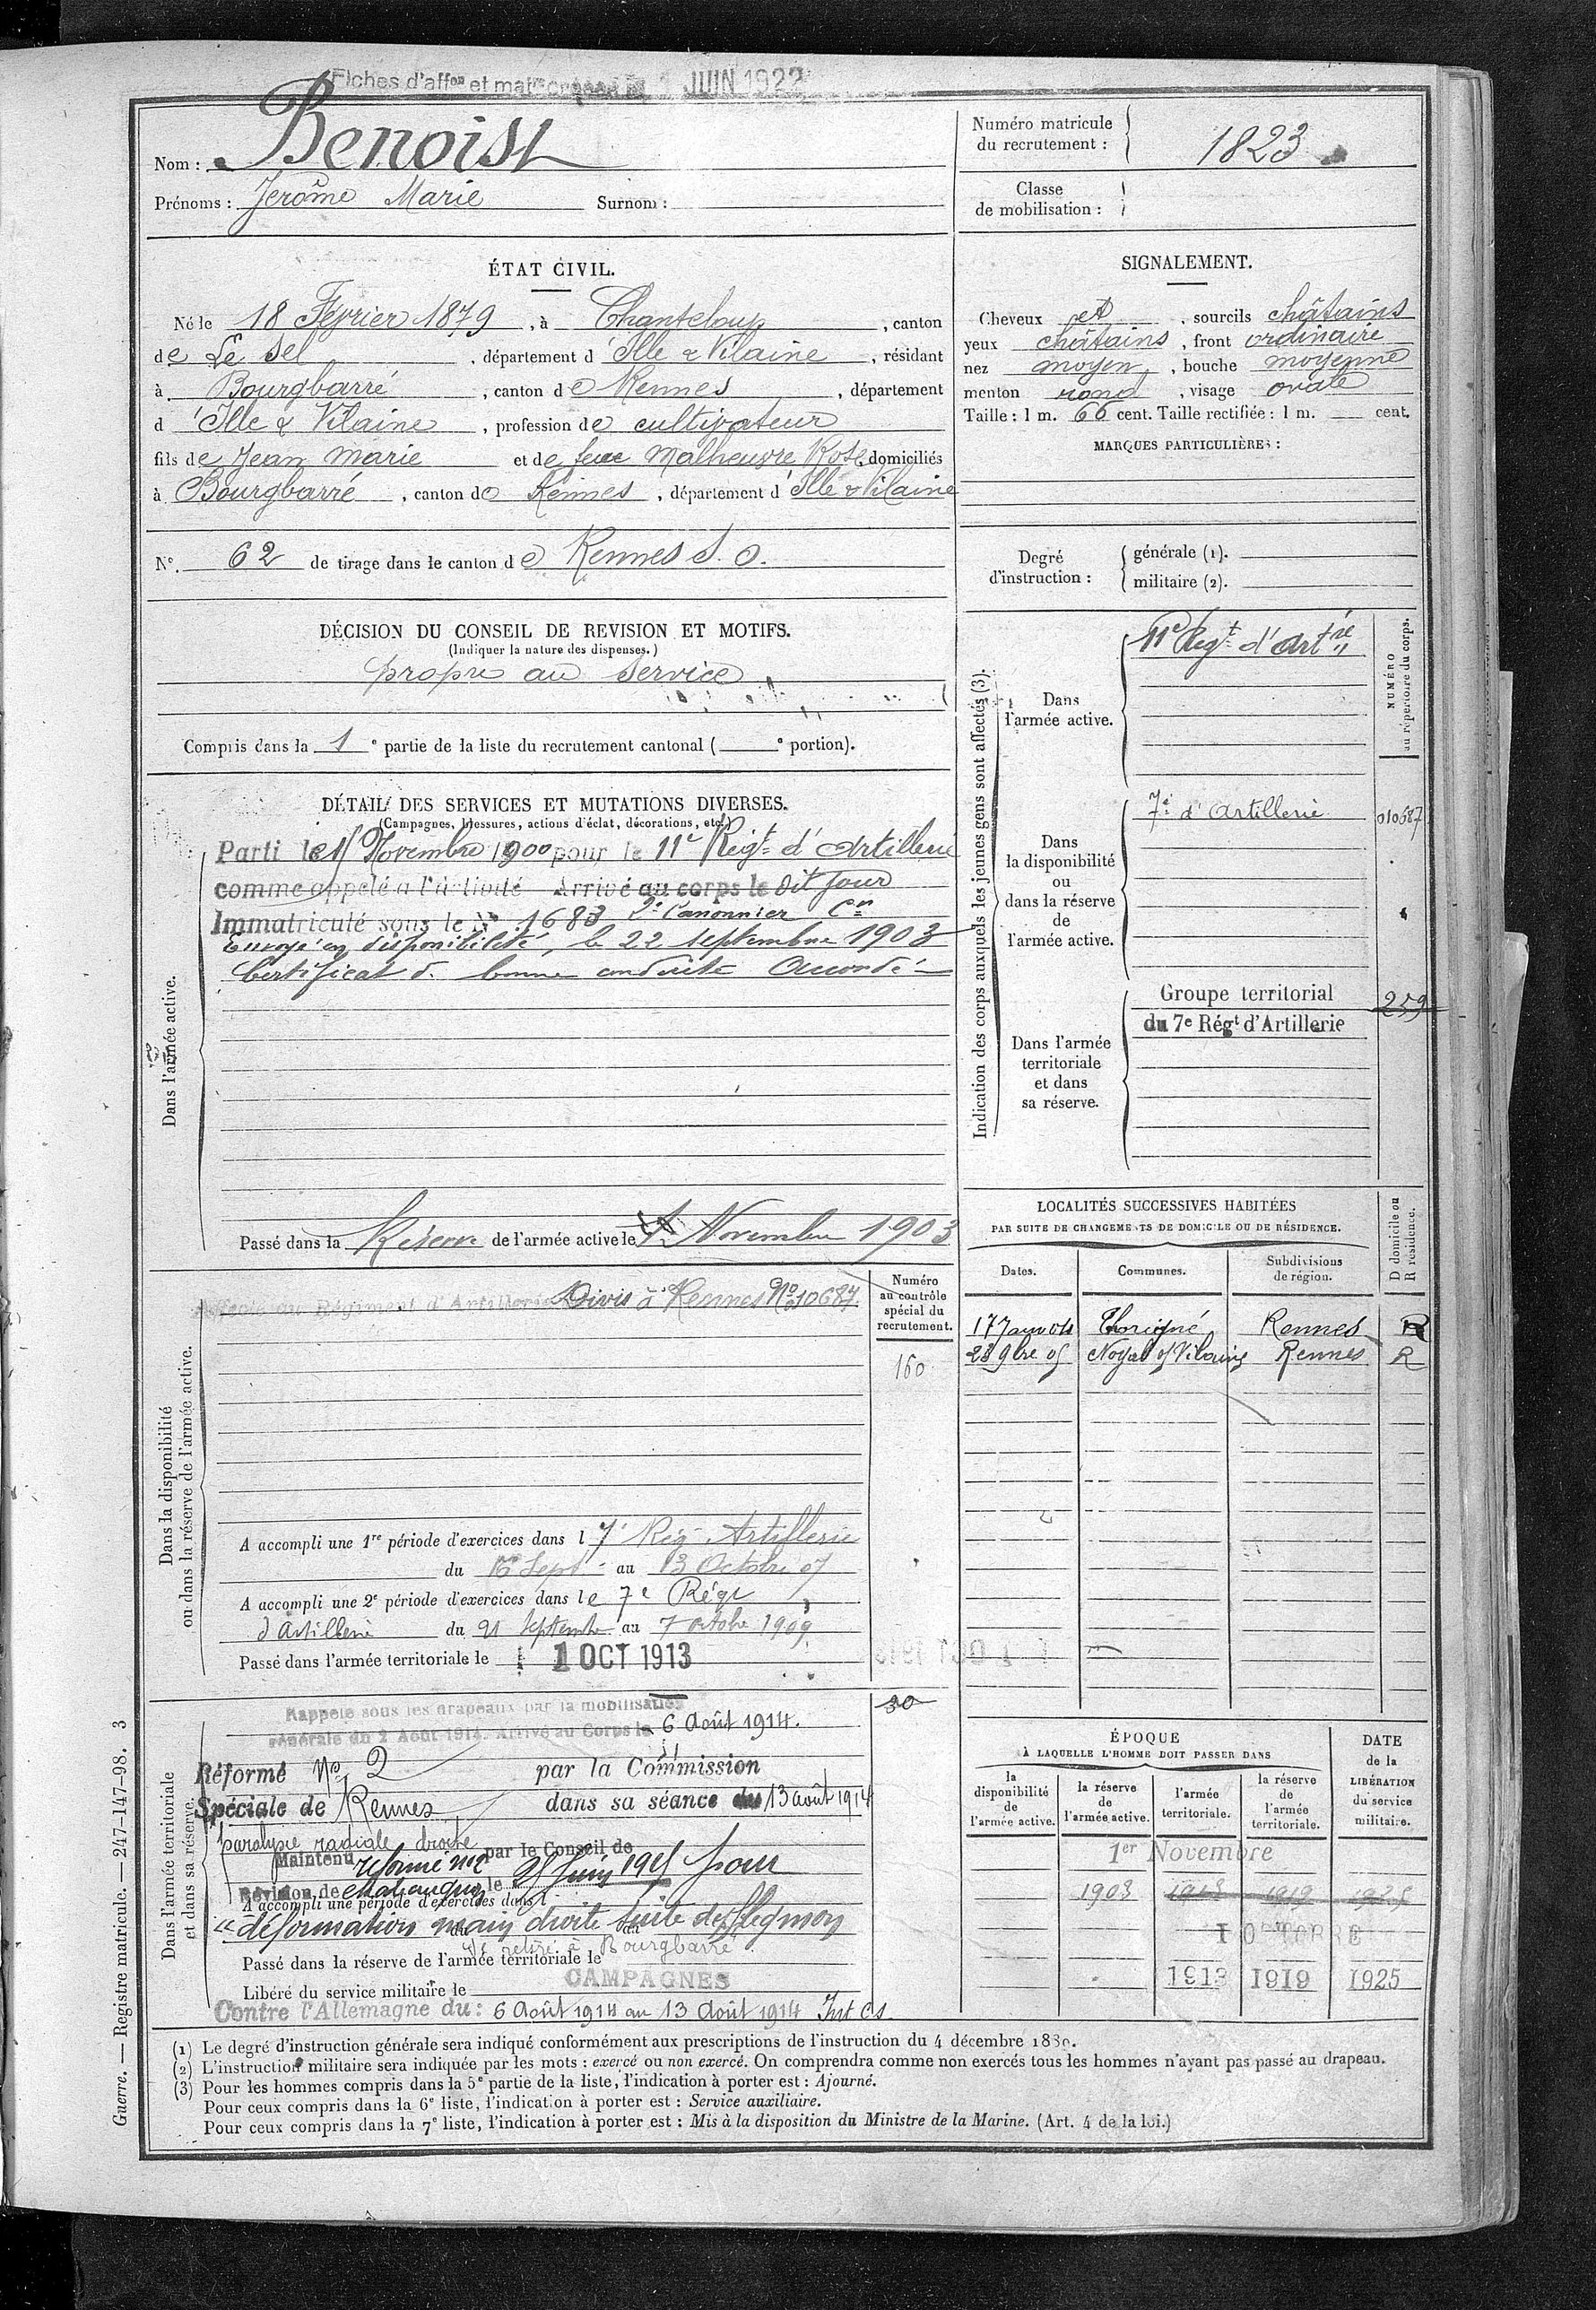 Fiches d'aff^on et mat^re créées le 1 JUIN 1922
Nom : Benoist
Prénoms : Jerôme Marie Surnom :
Numéro matricule du recrutement : 1823
Classe de mobilisation :
ÉTAT CIVIL.
Né le 18 Février 1879, à Chanteloup, canton
de Le Sel, département d'Ille & Vilaine, résidant
à Bourgbarré, canton de Rennes, département
d'Ille & Vilaine, profession de cultivateur
fils de Jean Marie et de feue Malheuvre Rose, domiciliés
à Bourgbarré, canton de Rennes, département d'Ille & Vilaine
N° 62 de tirage dans le canton de Rennes S. O.
SIGNALEMENT.
Cheveux et, sourcils châtains
yeux châtains, front ordinaire
nez moyen, bouche moyenne
menton rond, visage ovale
Taille : 1 m. 66 cent. Taille rectifiée : 1 m. cent.
MARQUES PARTICULIÈRES :
Degré d'instruction : générale (1).
militaire (2).
DÉCISION DU CONSEIL DE REVISION ET MOTIFS.
(Indiquer la nature des dispenses.)
propre au service
Compris dans la 1e partie de la liste du recrutement cantonal ( e portion).
DÉTAIL DES SERVICES ET MUTATIONS DIVERSES.
(Campagnes, blessures, actions d'éclat, décorations, etc.)
Dans l'armée active.
Parti le 15 Novembre 1900 pour le 11e Régt d'Artillerie
comme appelé à l'activité Arrivé au corps le dit jour
Immatriculé sous le N° 1683 2e Canonnier Cn
Envoyé en disponibilité, le 22 septembre 1903
Certificat de bonne conduite Accordé
Passé dans la Réserve de l'armée active le 1 Novembre 1903
Indication des corps auxquels les jeunes gens sont affectés (3).
NUMÉRO au répertoire du corps.
Dans l'armée active.
11e Régt d'Artrie
Dans la disponibilité ou dans la réserve de l'armée active.
7e d'Artillerie 010687
Dans l'armée territoriale et dans sa réserve.
Groupe territorial 259
du 7e Régt d'Artillerie
LOCALITÉS SUCCESSIVES HABITÉES
PAR SUITE DE CHANGEMENTS DE DOMICILE OU DE RÉSIDENCE.
D domicile ou R résidence.
Dates. Communes. Subdivisions de région.
17 Janv 04 Thorigné Rennes R
28 9bre 05 Noyal s/ Vilaine Rennes R
Dans la disponibilité ou dans la réserve de l'armée active.
Numéro au contrôle spécial du recrutement.
Affecté au Régiment d'Artillerie Divis à Rennes N° 010687
160
A accompli une 1re période d'exercices dans l 7e Rég Artillerie
du 16 Sept au 13 Octobre 07
A accompli une 2e période d'exercices dans le 7e Régt
d'Artillerie du 21 Septembre au 7 octobre 1909
Passé dans l'armée territoriale le 1 OCT 1913
Dans l'armée territoriale et dans sa réserve.
30
Rappelé sous les drapeaux par la mobilisation
générale du 2 Août 1914. Arrivé au Corps le 6 Août 1914.
Réformé N° 2 par la Commission
Spéciale de Rennes dans sa séance du 13 août 1914
paralysie radiale droite
Maintenu réformé n°2 par le Conseil de
Révision de Chateaugiron le 25 Juin 1915 pour
A accompli une période d'exercices dans l
"déformation main droite suite de flegmon
Se retire à Bourgbarré
Passé dans la réserve de l'armée territoriale le
CAMPAGNES
Libéré du service militaire le
Contre l'Allemagne du : 6 Août 1914 au 13 Août 1914 Int Cs
ÉPOQUE
À LAQUELLE L'HOMME DOIT PASSER DANS
la disponibilité de l'armée active.
la réserve de l'armée active.
l'armée territoriale.
la réserve de l'armée territoriale.
DATE de la LIBÉRATION du service militaire.
1er Novembre
1903 1913 1919 1925
1 OCTOBRE
1913 1919 1925
(1) Le degré d'instruction générale sera indiqué conformément aux prescriptions de l'instruction du 4 décembre 1889.
(2) L'instruction militaire sera indiquée par les mots : exercé ou non exercé. On comprendra comme non exercés tous les hommes n'ayant pas passé au drapeau.
(3) Pour les hommes compris dans la 5e partie de la liste, l'indication à porter est : Ajourné.
Pour ceux compris dans la 6e liste, l'indication à porter est : Service auxiliaire.
Pour ceux compris dans la 7e liste, l'indication à porter est : Mis à la disposition du Ministre de la Marine. (Art. 4 de la loi.)
Guerre. — Registre matricule. — 247-147-98. 3